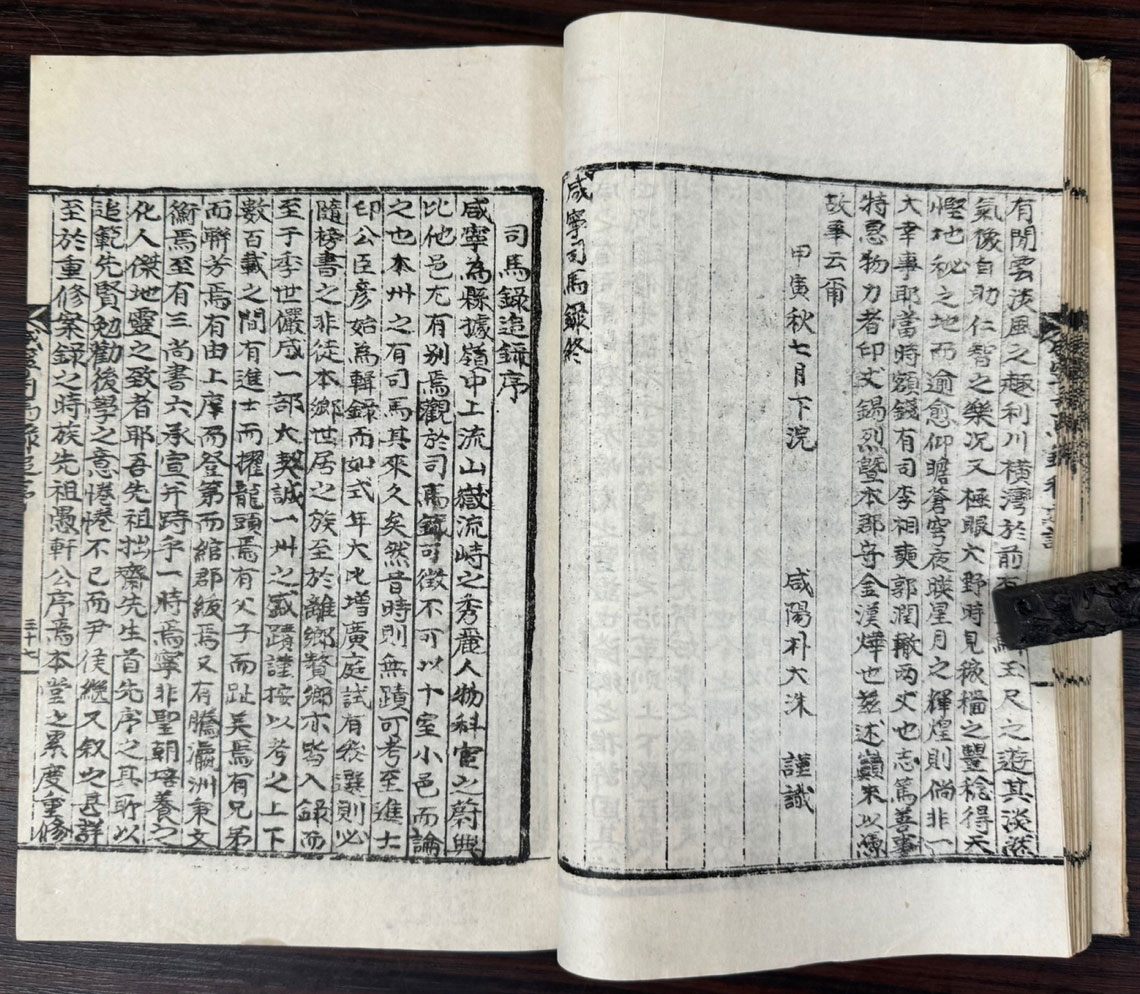 有閒雲淡風之趣利川橫灣於前玉尺之遊其淡然
氣像自助仁智之樂况又極眼大野時見稼穡之豐稔得天
慳地秘之地而逾愈仰瞻蒼穹夜睽星月之輝煌則倘非一
大幸事耶當時額錢有司李相奭郭潤轍兩丈也志篤善事
特恩物力者印丈錫烈曁本郡守金漢燁也玆述顚末以爲
故事云爾
甲寅秋七月下浣 咸陽朴大洙 謹識
咸寧司馬錄終
司馬錄追錄序
咸寧為縣據嶺中上流山嶽流峙之秀麗人物科宦之蔚興
比他邑尤有别焉觀於司馬錄可徵不可以十室小邑而論
之也本州之有司馬其來久矣然昔時則無蹟可考至進士
印公臣彦始為輯錄而如式年大比增廣庭試有發選則必
隨榜書之非徒本鄉世居之族至於離鄉贅鄉亦皆入錄而
至于季世儼成一部大契誠一州之盛蹟謹按以考之上下
數百載之間有進士而擢龍頭焉有父子而趾美焉有兄弟
而聯芳焉有由上庠而登第而綰郡紱焉又有騰瀛洲秉文
衡焉至有三尚書六承宣并跱乎一時焉寧非聖朝培養之
化人傑地靈之致者耶吾先祖拙齋先生首先序之其所以
追範先賢勉勸後學之意惓惓不已而尹侯繼又叙之甚詳
至於重修案錄之時族先祖愚軒公序焉本堂之累度重修
三十七